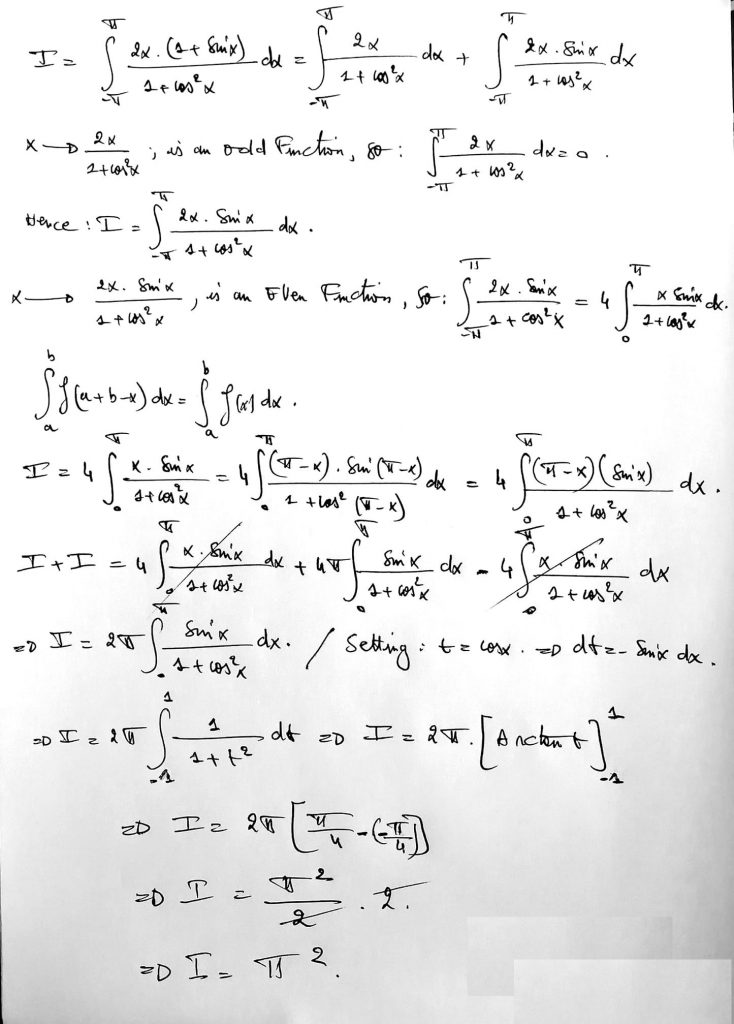 I = ∫_{-π}^{π} 2x.(1+sinx)/(1+cos²x) dx = ∫_{-π}^{π} 2x/(1+cos²x) dx + ∫_{-π}^{π} 2x.sinx/(1+cos²x) dx
x → 2x/(1+cos²x) ; is an odd Function, so : ∫_{-π}^{π} 2x/(1+cos²x) dx = 0 .
Hence : I = ∫_{-π}^{π} 2x.sinx/(1+cos²x) dx .
x → 2x.sinx/(1+cos²x) , is an Even Function, So : ∫_{-π}^{π} 2x.sinx/(1+cos²x) = 4 ∫_{0}^{π} x sinx/(1+cos²x) dx.
∫_{a}^{b} f(a+b-x) dx = ∫_{a}^{b} f(x) dx .
I = 4 ∫_{0}^{π} x.sinx/(1+cos²x) = 4 ∫_{0}^{π} (π-x).sin(π-x)/(1+cos²(π-x)) dx = 4 ∫_{0}^{π} (π-x)(sinx)/(1+cos²x) dx .
I + I = 4 ∫_{0}^{π} x.sinx/(1+cos²x) dx + 4π ∫_{0}^{π} sinx/(1+cos²x) dx - 4 ∫_{0}^{π} x.sinx/(1+cos²x) dx
=> I = 2π ∫_{0}^{π} sinx/(1+cos²x) dx. / Setting : t = cosx . => dt = - sinx dx .
=> I = 2π ∫_{-1}^{1} 1/(1+t²) dt => I = 2π . [Arctan t]_{-1}^{1}
=> I = 2π [π/4 - (-π/4)]
=> I = π²/2 . 2.
=> I = π² .